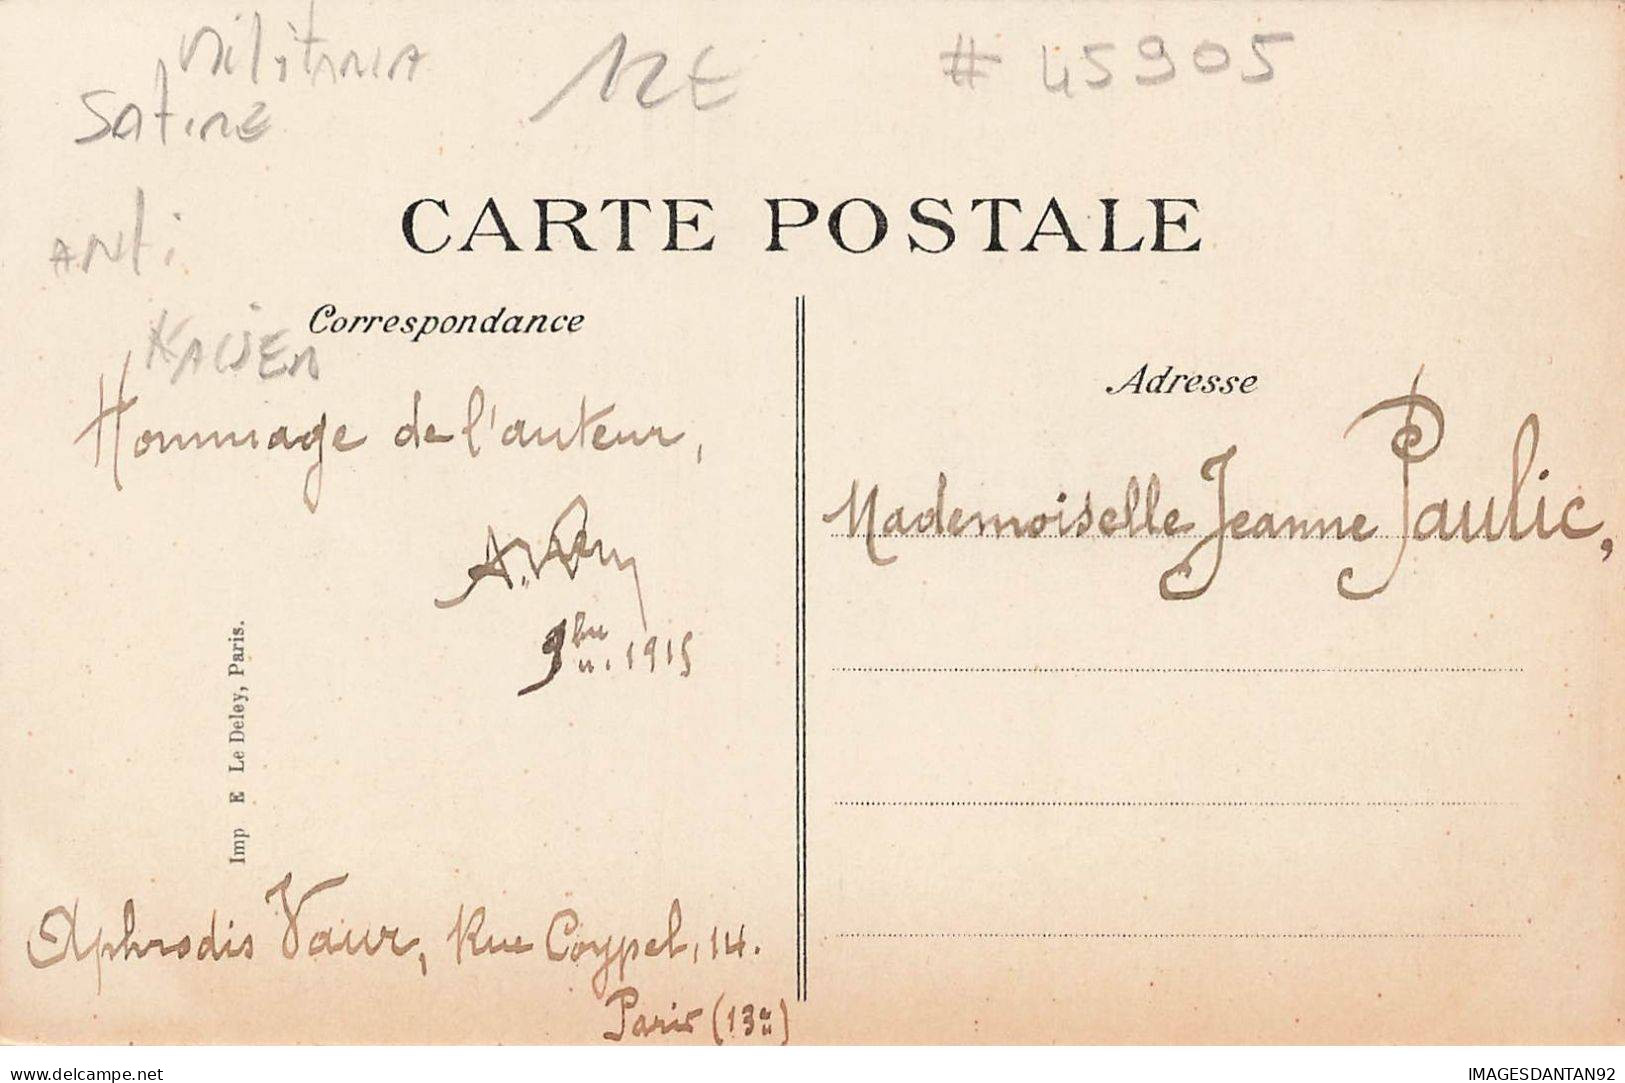 Militaria
Satire
12€
# 45905
Anti
Kaiser
CARTE POSTALE
Correspondance
Adresse
Hommage de l'auteur,
9bre 1915
Mademoiselle Jeanne Paulic,
Imp E Le Deley, Paris.
Aphrodis Vaur, Rue Coypel, 14.
Paris (13e)
delcampe.net
IMAGESDANTAN92